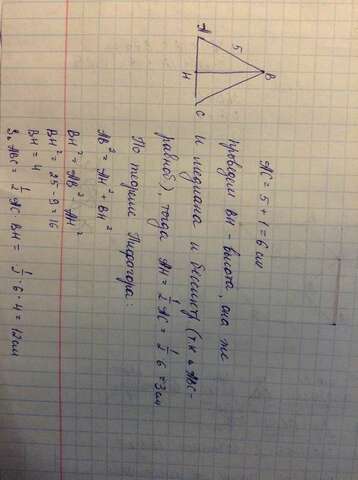 A
5
H
B
C
AC = 5 + 1 = 6 см
Проведём BH - высота, она же
и медиана и биссект (т.к. △ ABC -
равноб), тогда AH = 1/2 AC = 1/2 6 = 3 см
По теореме Пифагора:
AB² = AH² + BH²
BH² = AB² - AH²
BH² = 25 - 9 = 16
BH = 4
S△ABC = 1/2 AC · BH = 1/2 · 6 · 4 = 12 см